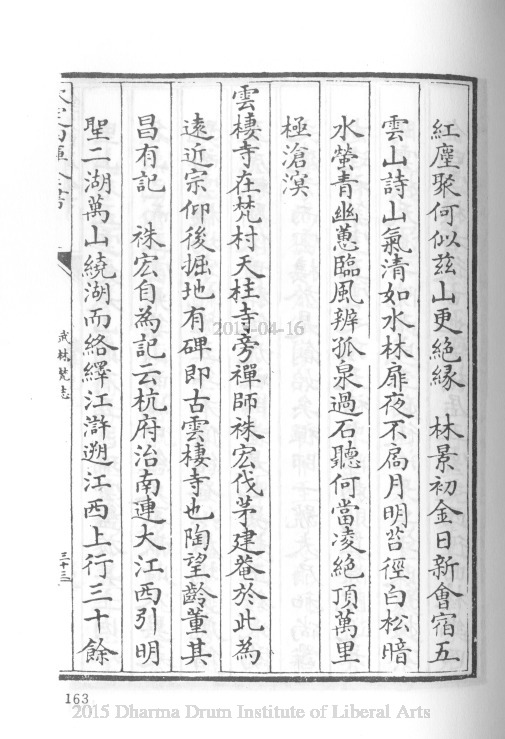 紅塵聚何似兹山更絶縁　林景初金日新會宿五
雲山詩山氣清如水林扉夜不扃月明苔徑白松暗
水螢青幽蕙臨風辨孤泉過石聽何當凌絶頂萬里
極滄溟
雲棲寺在梵村天柱寺旁禪師袾宏伐茅建菴於此為
遠近宗仰後掘地有碑即古雲棲寺也陶望齡董其
昌有記　袾宏自為記云杭府治南連大江西引明
聖二湖萬山繞湖而絡繹江滸遡江西上行三十餘
武林梵志
三十三
2015-04-16
163
2015 Dharma Drum Institute of Liberal Arts